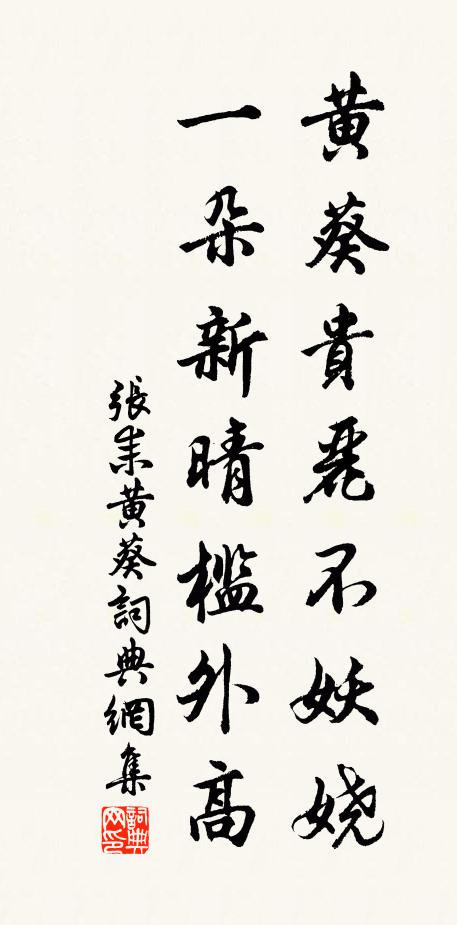 黄葵貴麗不妖娆
一朵新晴檻外高
張耒黄葵詞典網集
詞典网印